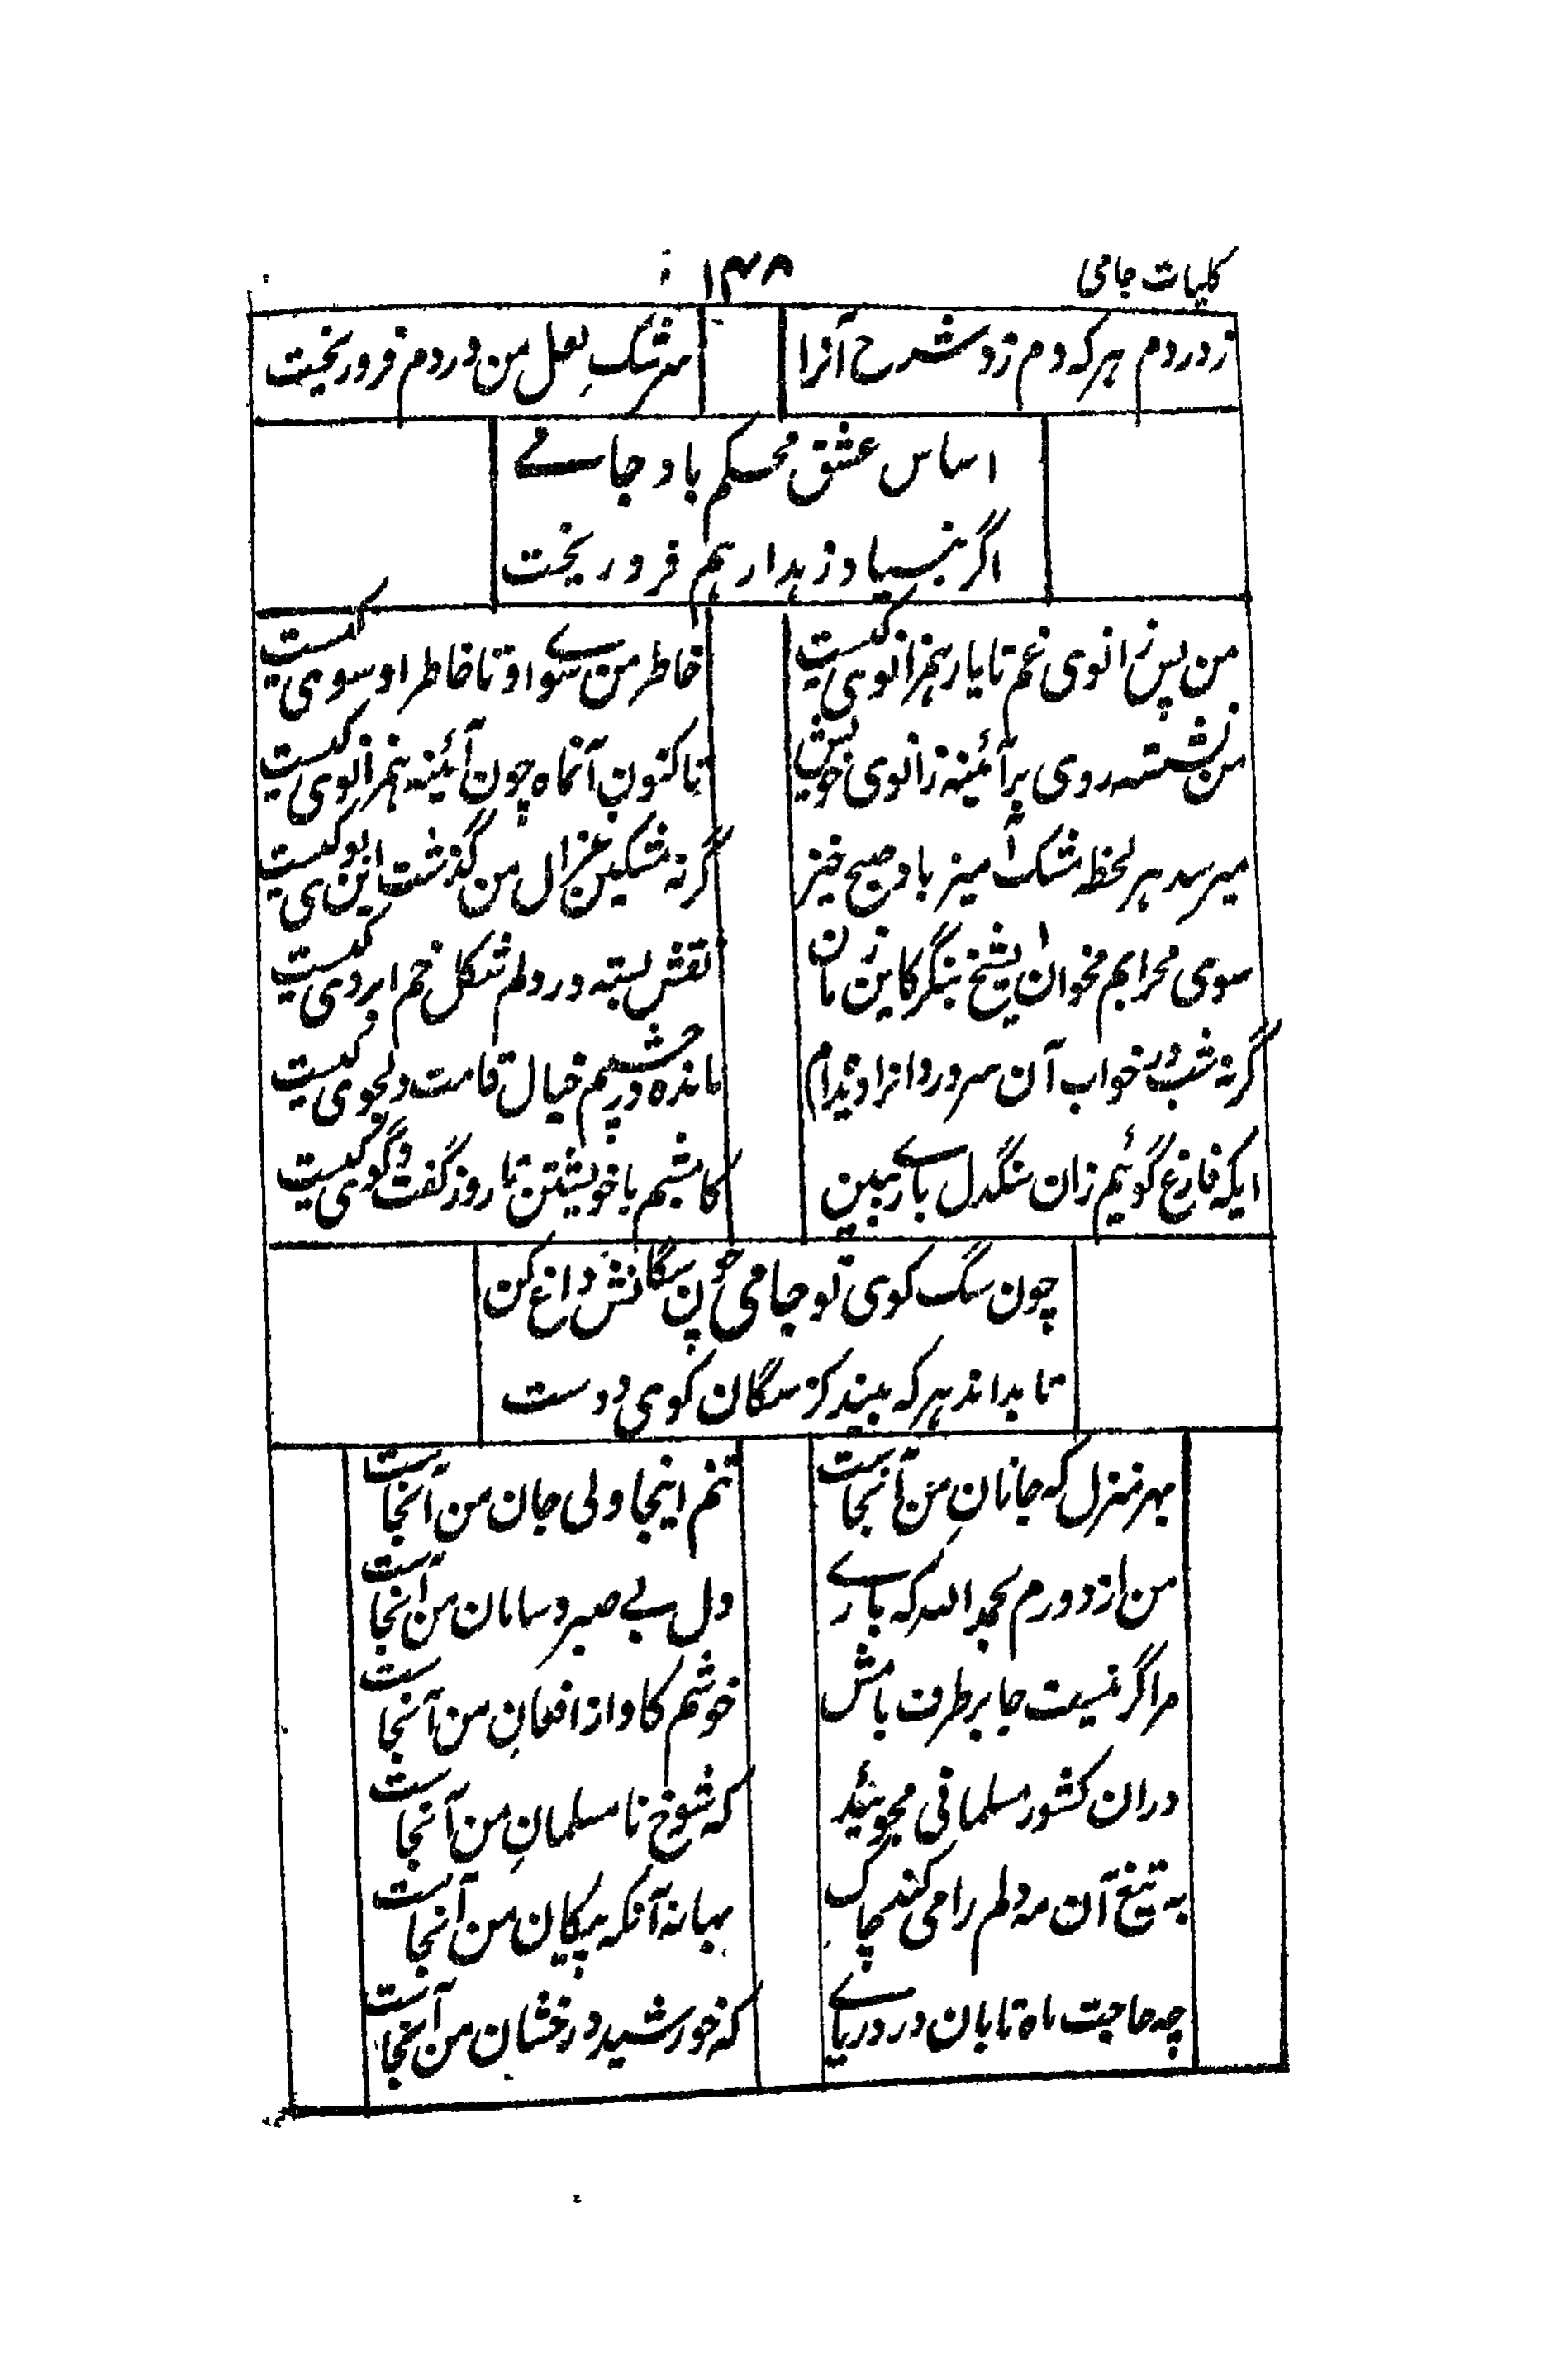 کلیات جامی
۱۴۸
ز دردم هر که دم زد شرح آنرا
سرشکِ لعل من در دم فرو ریخت
اساس عشق محکم باد جامے
اگر بنیاد زهدار هم فرو ریخت
من پس زانوی غم تا یار همزانوی کیست
خاطر من سوے او تا خاطر او سوی کیست
من نشسته روی بر آئینه زانوی خویش
تا کنون آنماه چون آئینه همزانوی کیست
میرسد هر لحظه مشک آمیز باد صبح خیز
گرنه مشکین غزال من گذشت این بوی کیست
سوی محرابم مخوان ایشیخ بنگر کاین زمان
نقش بسته در دلم شکل خم ابروی کیست
گرنه شب در خواب آن سرو روانرا دیده‌ام
مانده در چشمم خیال قامت دلجوی کیست
ایکه فارغ گوئیم زان سنگدل بارے ببین
کامشبم با خویشتن تا روز گفت و گوی کیست
چون سگ کوی تو جامی چون سگانش داغ کن
تا بداند هر که بیند کز سگان کوی دوست
بهر منزل که جانانِ من آنجاست
تنم اینجا ولی جان من آنجاست
من از دورم بحمد الله که بارے
دل بے صبر و سامان من آنجاست
مرا گر نیست جا بر طرف بامش
خوشم کاواز افغانِ من آنجاست
دران کشور مسلمانی مجوئید
که شوخ نامسلمانِ من آنجاست
به تیغ آن مه دلم را می کند چاک
بهانه آنکه پیکان من آنجاست
چه حاجت ماه تابان در دریاے
که خورشید درخشان من آنجاست